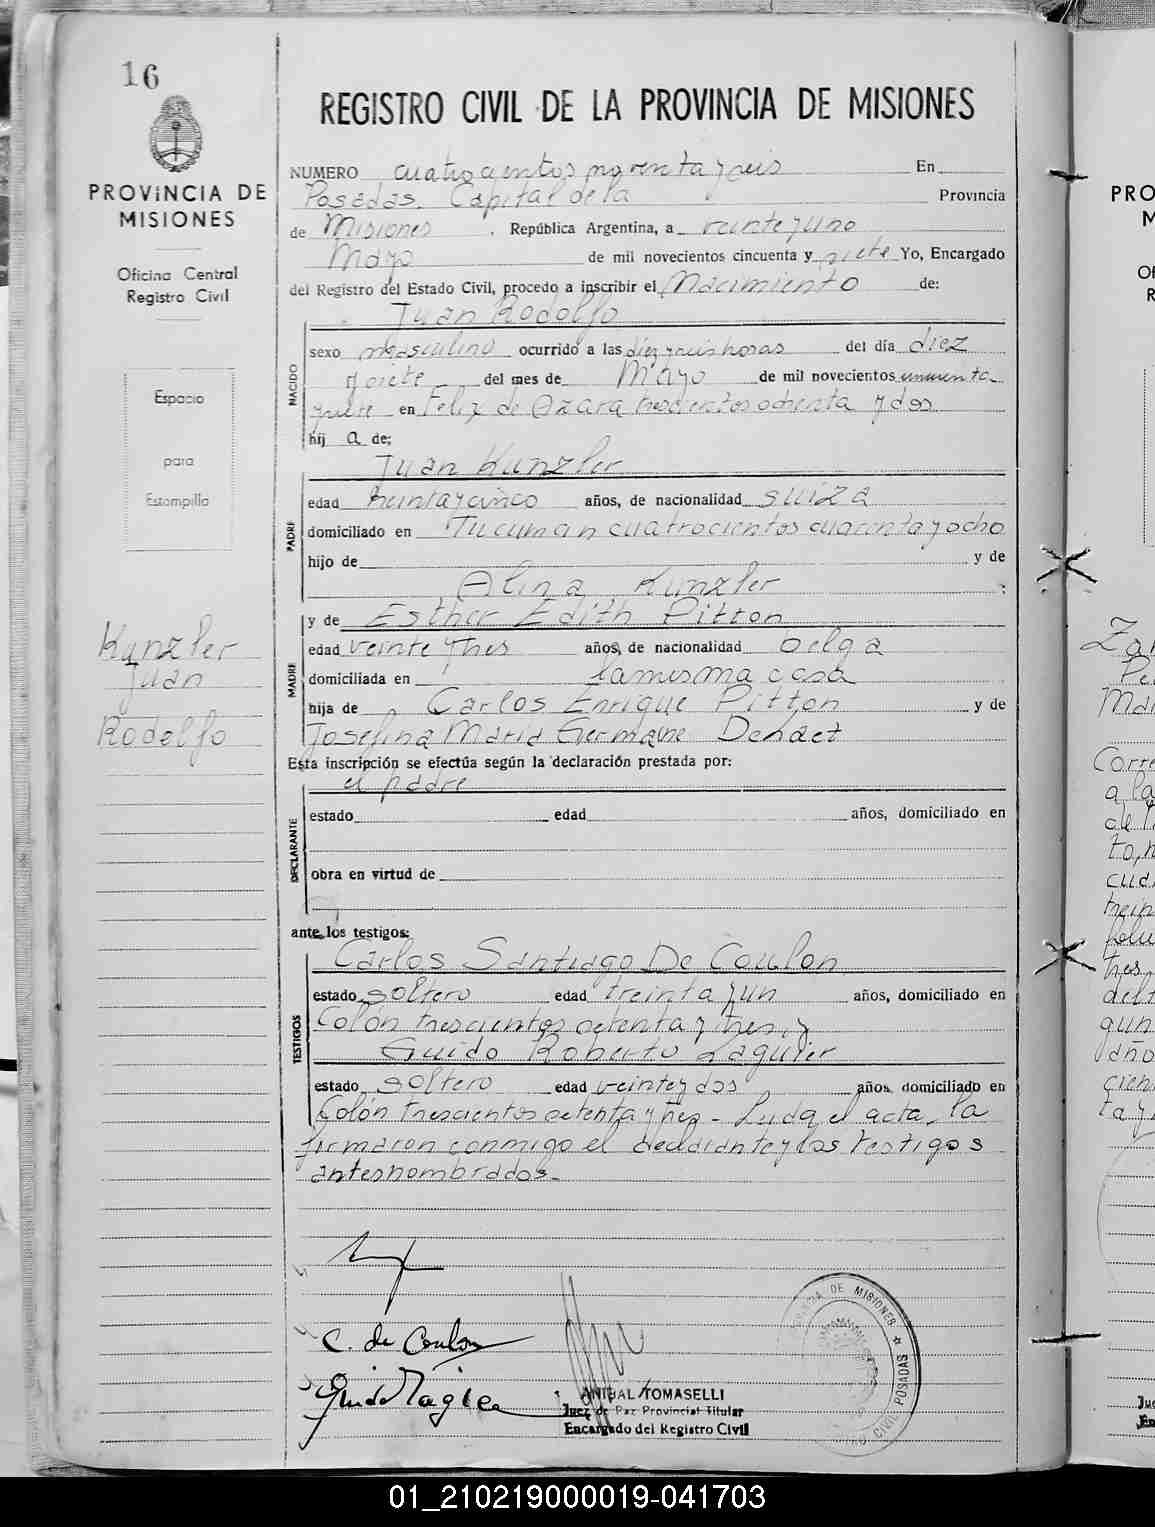 16
PROVINCIA DE
MISIONES
Oficina Central
Registro Civil
Espacio
para
Estampilla
Kunzler
Juan
Rodolfo
REGISTRO CIVIL DE LA PROVINCIA DE MISIONES
NUMERO cuatrocientos noventa y seis En
Posadas. Capital de la Provincia
de Misiones. República Argentina, a veinte y uno
Mayo de mil novecientos cincuenta y siete Yo, Encargado
del Registro del Estado Civil, procedo a inscribir el Nacimiento de:
Juan Rodolfo
NACIDO
sexo masculino ocurrido a las diez y seis horas del día diez
y siete del mes de Mayo de mil novecientos cincuenta
y siete en Feliz de Azara trescientos ochenta y dos
hij a de;
Juan Kunzler
PADRE
edad treinta y cinco años, de nacionalidad suiza
domiciliado en Tucuman cuatrocientos cuarenta y ocho
hijo de y de
Alina Kunzler ;
y de Esther Edith Pitton
MADRE
edad veinte y tres años, de nacionalidad belga
domiciliada en la misma casa
hija de Carlos Enrique Pitton y de
Josefina Maria Germaine Denaet
Esta inscripción se efectúa según la declaración prestada por:
el padre
DECLARANTE
estado edad años, domiciliado en
obra en virtud de
ante los testigos:
Carlos Santiago De Coulon
TESTIGOS
estado soltero edad treinta y un años, domiciliado en
Colón trescientos setenta y tres, y
Guido Roberto Lagier
estado soltero edad veinte y dos años, domiciliado en
Colón trescientos setenta y tres - Leida el acta, la
firmaron conmigo el declarante y los testigos
antes nombrados.-
C. de Coulon
Guido Lagier
ANIBAL TOMASELLI
Juez de Paz Provincial Titular
Encargado del Registro Civil
PROVINCIA DE MISIONES ☆ REGISTRO CIVIL POSADAS
01_210219000019-041703